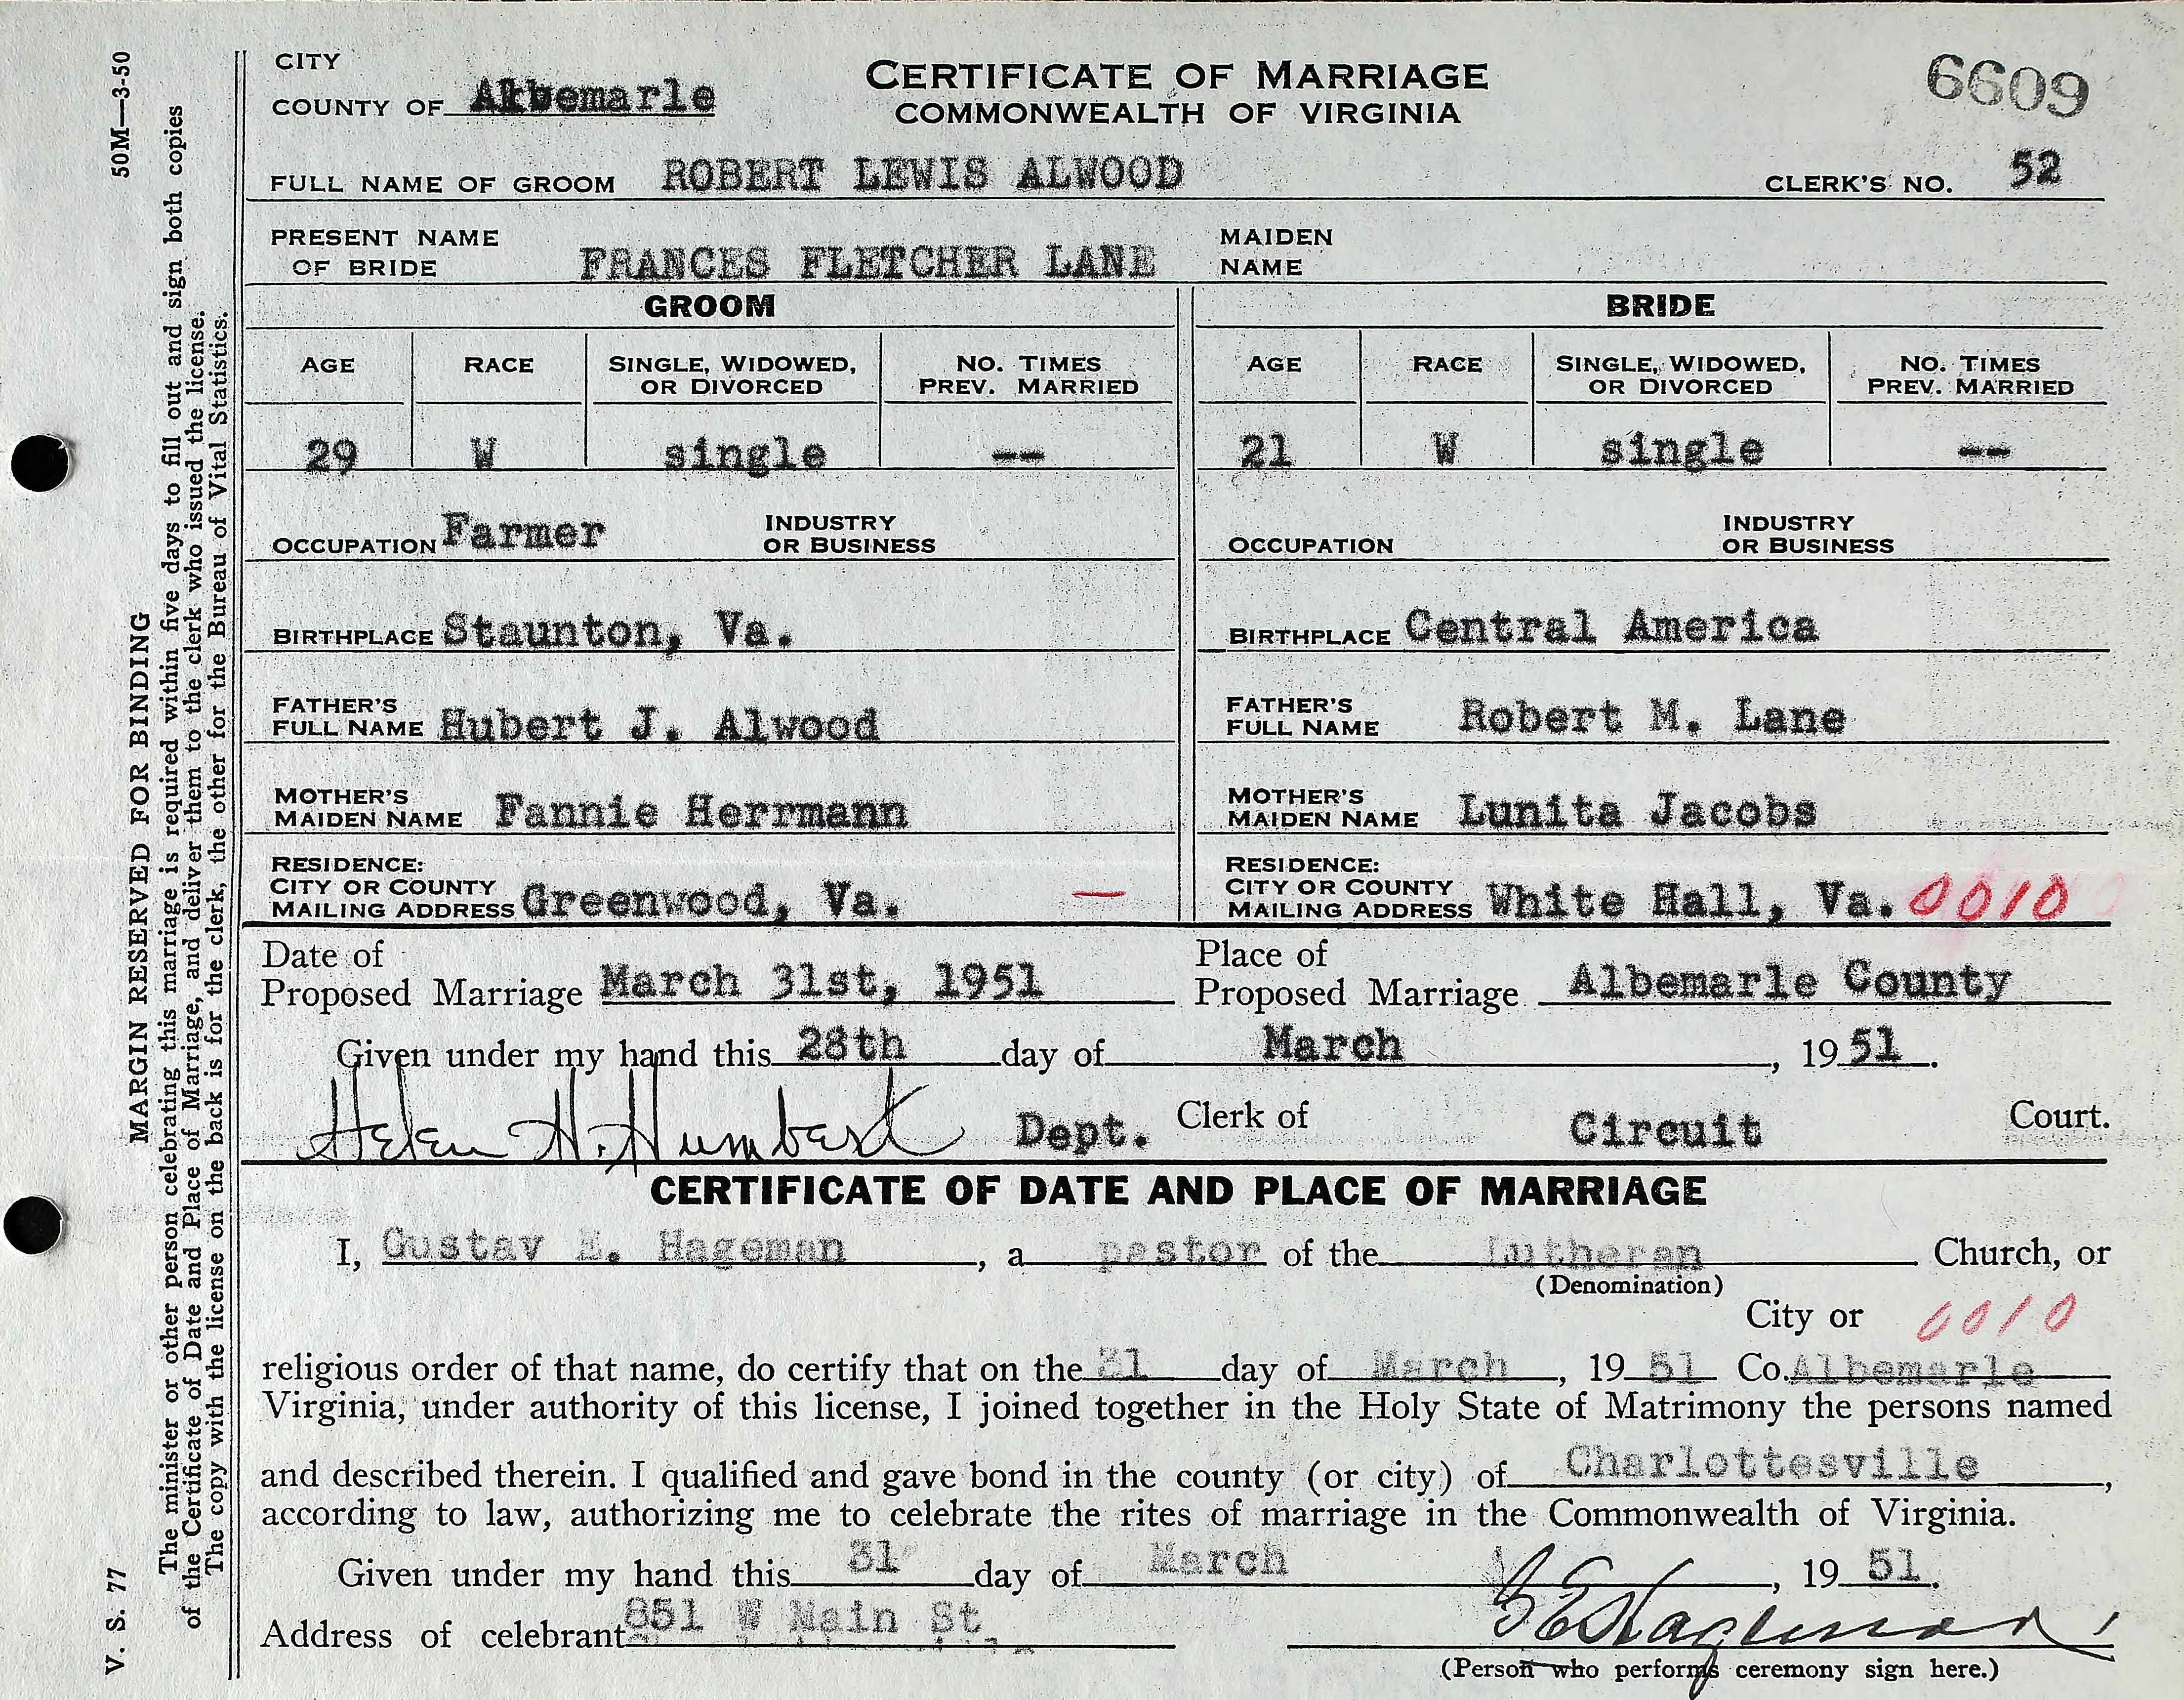 50M—3-50
MARGIN RESERVED FOR BINDING
The minister or other person celebrating this marriage is required within five days to fill out and sign both copies
of the Certificate of Date and Place of Marriage, and deliver them to the clerk who issued the license.
The copy with the license on the back is for the clerk, the other for the Bureau of Vital Statistics.
V. S. 77
CITY
COUNTY OF Albemarle
CERTIFICATE OF MARRIAGE
COMMONWEALTH OF VIRGINIA
6609
FULL NAME OF GROOM ROBERT LEWIS ALWOOD CLERK'S NO. 52
PRESENT NAME
OF BRIDE FRANCES FLETCHER LANE
MAIDEN
NAME
GROOM BRIDE
AGE RACE SINGLE, WIDOWED, OR DIVORCED NO. TIMES PREV. MARRIED AGE RACE SINGLE, WIDOWED, OR DIVORCED NO. TIMES PREV. MARRIED
29 W single -- 21 W single --
OCCUPATION Farmer INDUSTRY OR BUSINESS OCCUPATION INDUSTRY OR BUSINESS
BIRTHPLACE Staunton, Va. BIRTHPLACE Central America
FATHER'S FULL NAME Hubert J. Alwood FATHER'S FULL NAME Robert M. Lane
MOTHER'S MAIDEN NAME Fannie Herrmann MOTHER'S MAIDEN NAME Lunita Jacobs
RESIDENCE: CITY OR COUNTY MAILING ADDRESS Greenwood, Va. — RESIDENCE: CITY OR COUNTY MAILING ADDRESS White Hall, Va. 0010
Date of Proposed Marriage March 31st, 1951 Place of Proposed Marriage Albemarle County
Given under my hand this 28th day of March, 1951.
Helen H. Humbert Dept. Clerk of Circuit Court.
CERTIFICATE OF DATE AND PLACE OF MARRIAGE
I, Gustav E. Hageman, a pastor of the Lutheran Church, or
(Denomination)
City or 0010
religious order of that name, do certify that on the 31 day of March, 19 51 Co. Albemarle
Virginia, under authority of this license, I joined together in the Holy State of Matrimony the persons named
and described therein. I qualified and gave bond in the county (or city) of Charlottesville,
according to law, authorizing me to celebrate the rites of marriage in the Commonwealth of Virginia.
Given under my hand this 31 day of March, 19 51.
Address of celebrant 851 W Main St. G E Hageman
(Person who performs ceremony sign here.)